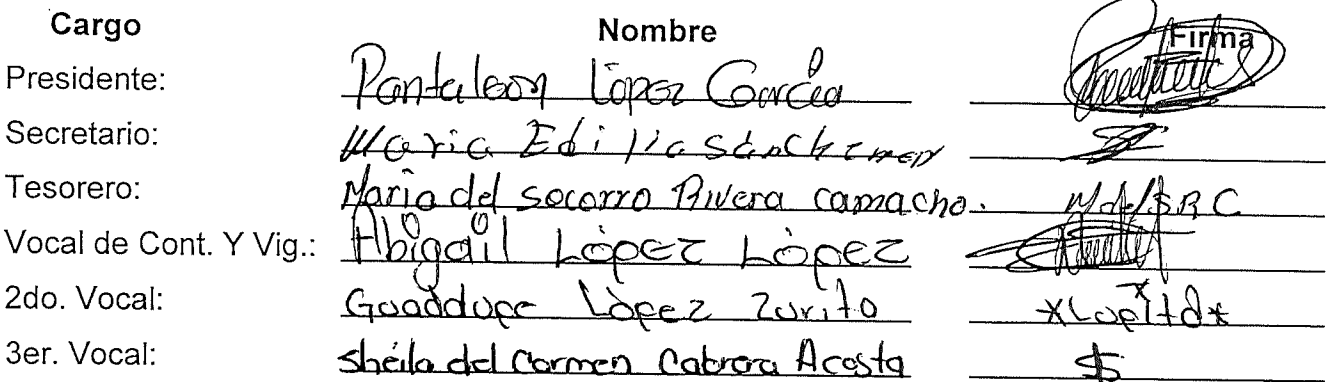 Cargo Nombre Firma
Presidente: Pantaleon López García
Secretario: Maria Edilia
Tesorero: Maria del socorro Rivera camacho. MdelSRC
Vocal de Cont. Y Vig.: Abigail López López
2do. Vocal: Guaddupe López Zurito
3er. Vocal: sheila del Carmen Cabrera Acosta